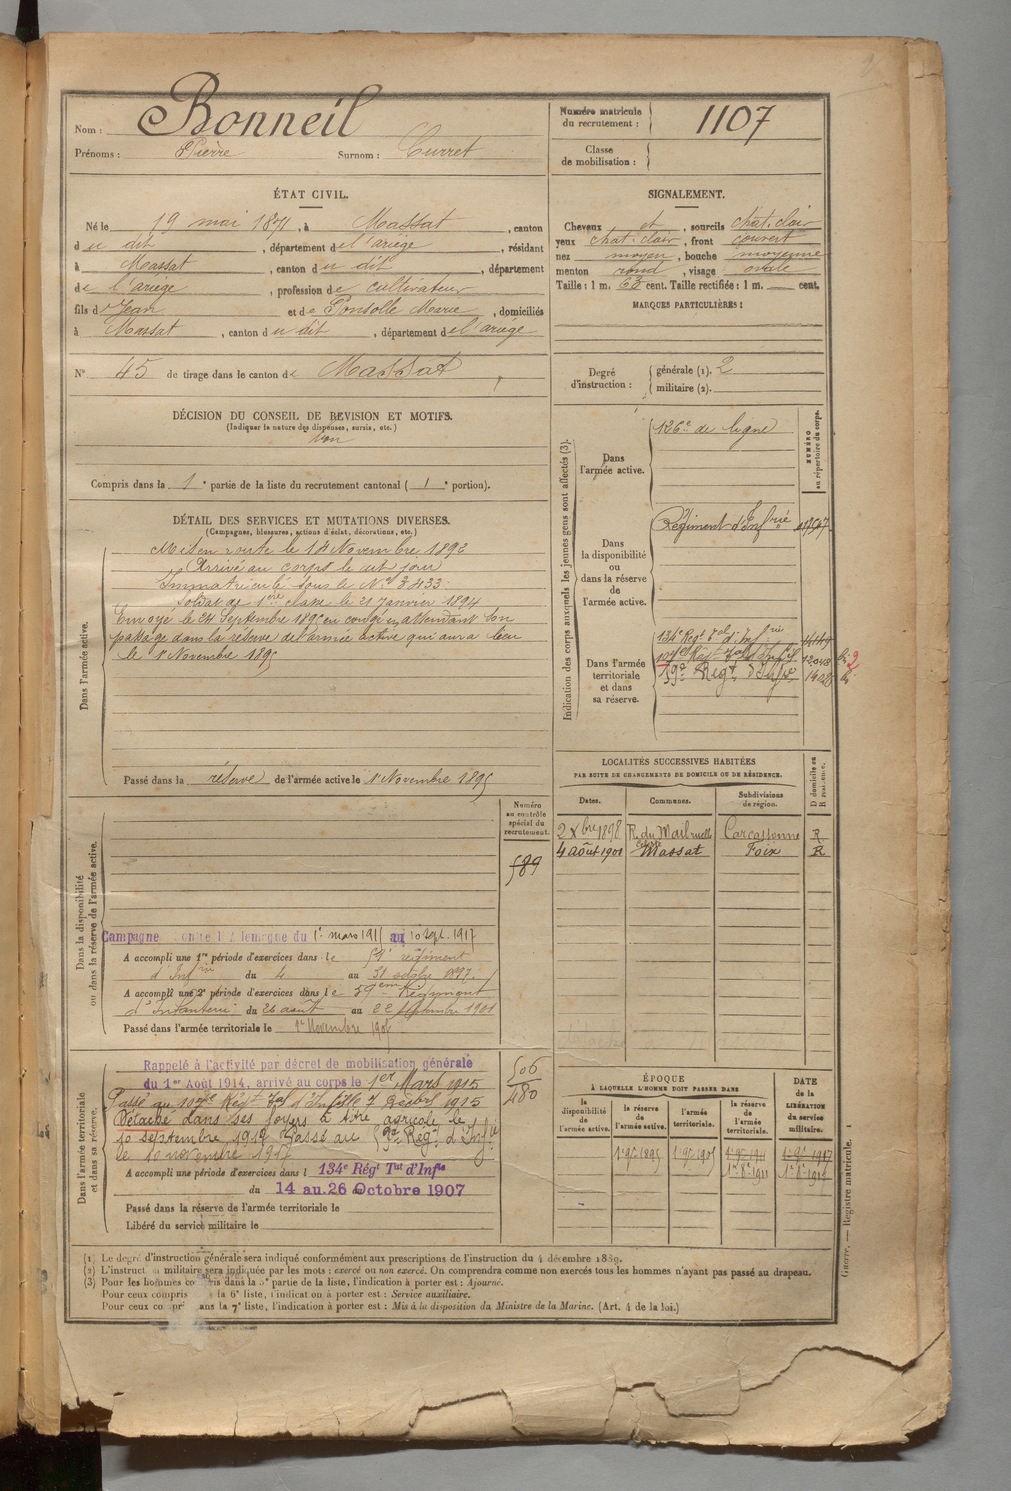 Nom : Bonneil
Prénoms : Pierre Surnom : Curret
Numéro matricule du recrutement : 1107
Classe de mobilisation :
ÉTAT CIVIL.
Né le 19 mai 1871, à Massat, canton
du dit, département de l'ariège, résidant
à Massat, canton du dit, département
de l'ariège, profession de cultivateur
fils de Jean et de Ponsolle Marie, domiciliés
à Massat, canton du dit, département de l'ariège
N° 45 de tirage dans le canton de Massat
SIGNALEMENT.
Cheveux et, sourcils chat. clair
yeux chat. clair, front couvert
nez moyen, bouche moyenne
menton rond, visage ovale
Taille : 1 m. 63 cent. Taille rectifiée : 1 m. — cent.
MARQUES PARTICULIÈRES :
Degré d'instruction : générale (1). 2
militaire (2).
DÉCISION DU CONSEIL DE REVISION ET MOTIFS.
(Indiquer la nature des dispenses, sursis, etc.)
bon
Compris dans la 1e partie de la liste du recrutement cantonal (1e portion).
DÉTAIL DES SERVICES ET MUTATIONS DIVERSES.
(Campagnes, blessures, actions d'éclat, décorations, etc.)
Dans l'armée active.
Mis en route le 14 Novembre 1892
Arrivé au corps le dit jour
Immatriculé sous le N° 3433
Soldat de 1ère classe le 21 Janvier 1894
Envoyé le 24 Septembre 1895 en congé en attendant son
passage dans la réserve de l'armée active qui aura lieu
le 1 Novembre 1895
Passé dans la réserve de l'armée active le 1 Novembre 1895
Indication des corps auxquels les jeunes gens sont affectés (3).
NUMÉRO au répertoire du corps.
Dans l'armée active.
126e de ligne
Dans la disponibilité ou dans la réserve de l'armée active.
Régiment d'Infrie
Dans l'armée territoriale et dans sa réserve.
134e Régt Tal d'Infrie
107e Régt Tal d'Infie
59e Régt d'Infie
LOCALITÉS SUCCESSIVES HABITÉES
PAR SUITE DE CHANGEMENTS DE DOMICILE OU DE RÉSIDENCE.
Dates. Communes. Subdivisions de région. D domicile ou R résidence.
2 Xbre 1898 R. du Mail Carcassonne R
4 août 1901 Massat Foix R
Dans la disponibilité ou dans la réserve de l'armée active.
Numéro au contrôle spécial du recrutement.
589
Campagne contre l'Allemagne du 1er mars 1915 au 10 sept. 1917
A accompli une 1re période d'exercices dans le 59e régiment
d'Infrie du 4 au 31 octobre 1897.
A accompli une 2e période d'exercices dans le 59ème Régiment
d'Infanterie du 26 août au 22 septembre 1901
Passé dans l'armée territoriale le 1er Novembre 1905
Dans l'armée territoriale et dans sa réserve.
506
480
Rappelé à l'activité par décret de mobilisation générale
du 1er Août 1914, arrivé au corps le 1er Mars 1915
Passé au 107e Régt Tal d'Infie le
Détaché dans ses foyers à titre agricole le
10 septembre 1917 Passé au 59e Régt d'Infie
le 10 novembre 1917
A accompli une période d'exercices dans l 134e Régt Tal d'Infie
du 14 au 26 Octobre 1907
Passé dans la réserve de l'armée territoriale le
Libéré du service militaire le
ÉPOQUE
À LAQUELLE L'HOMME DOIT PASSER DANS
la disponibilité de l'armée active. la réserve de l'armée active. l'armée territoriale. la réserve de l'armée territoriale.
DATE de la LIBÉRATION du service militaire.
(1) Le degré d'instruction générale sera indiqué conformément aux prescriptions de l'instruction du 4 décembre 1889.
(2) L'instruct on militaire sera indiquée par les mots : exercé ou non exercé. On comprendra comme non exercés tous les hommes n'ayant pas passé au drapeau.
(3) Pour les hommes co ris dans la 5e partie de la liste, l'indication à porter est : Ajourné.
Pour ceux compris la 6e liste, l'indication à porter est : Service auxiliaire.
Pour ceux co pri ans la 7e liste, l'indication à porter est : Mis à la disposition du Ministre de la Marine. (Art. 4 de la loi.)
Guerre. — Registre matricule. 1